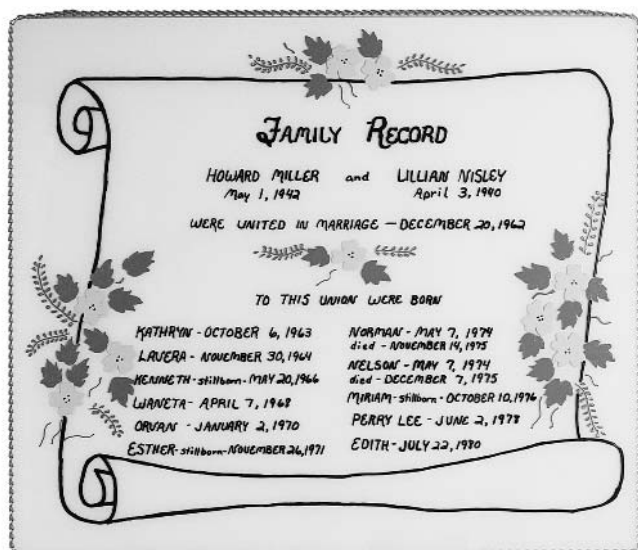 FAMILY RECORD
HOWARD MILLER and LILLIAN NISLEY
May 1, 1942 April 3, 1940
WERE UNITED IN MARRIAGE - DECEMBER 20, 1962
TO THIS UNION WERE BORN
KATHRYN - OCTOBER 6, 1963
LAVERA - NOVEMBER 30, 1964
KENNETH - stillborn - MAY 20, 1966
WANETA - APRIL 7, 1968
ORVAN - JANUARY 2, 1970
ESTHER - stillborn - NOVEMBER 26, 1971
NORMAN - MAY 7, 1974
died - NOVEMBER 14, 1975
NELSON - MAY 7, 1974
died - DECEMBER 7, 1975
MIRIAM - stillborn - OCTOBER 10, 1976
PERRY LEE - JUNE 2, 1978
EDITH - JULY 22, 1980